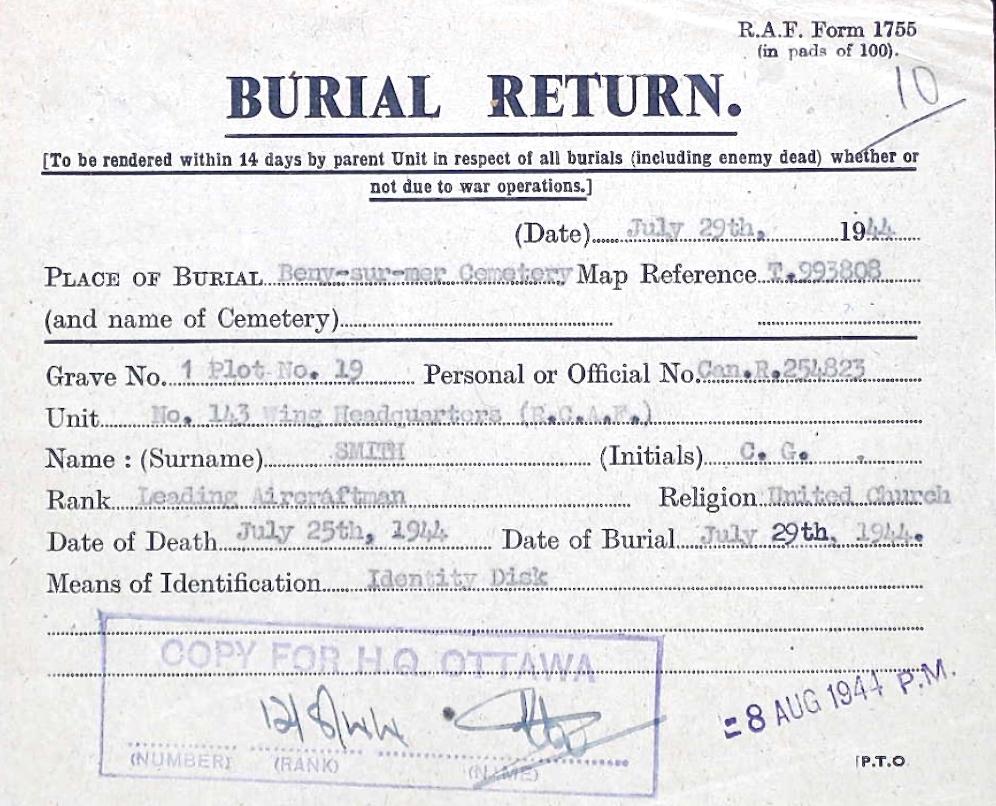 R.A.F. Form 1755
(in pads of 100).
10
BURIAL RETURN.
[To be rendered within 14 days by parent Unit in respect of all burials (including enemy dead) whether or
not due to war operations.]
(Date) July 29th, 1944
PLACE OF BURIAL Beny-sur-mer Cemetery Map Reference T.993808
(and name of Cemetery)
Grave No. 1 Plot No. 19 Personal or Official No. Can.R.254823
Unit No. 143 Wing Headquarters (R.C.A.F.)
Name : (Surname) SMITH (Initials) C. G.
Rank Leading Aircraftman Religion United Church
Date of Death July 25th, 1944 Date of Burial July 29th, 1944.
Means of Identification Identity Disk
COPY FOR H.Q. OTTAWA
12/8/44
(NUMBER) (RANK) (NAME)
8 AUG 1944 P.M.
P.T.O.